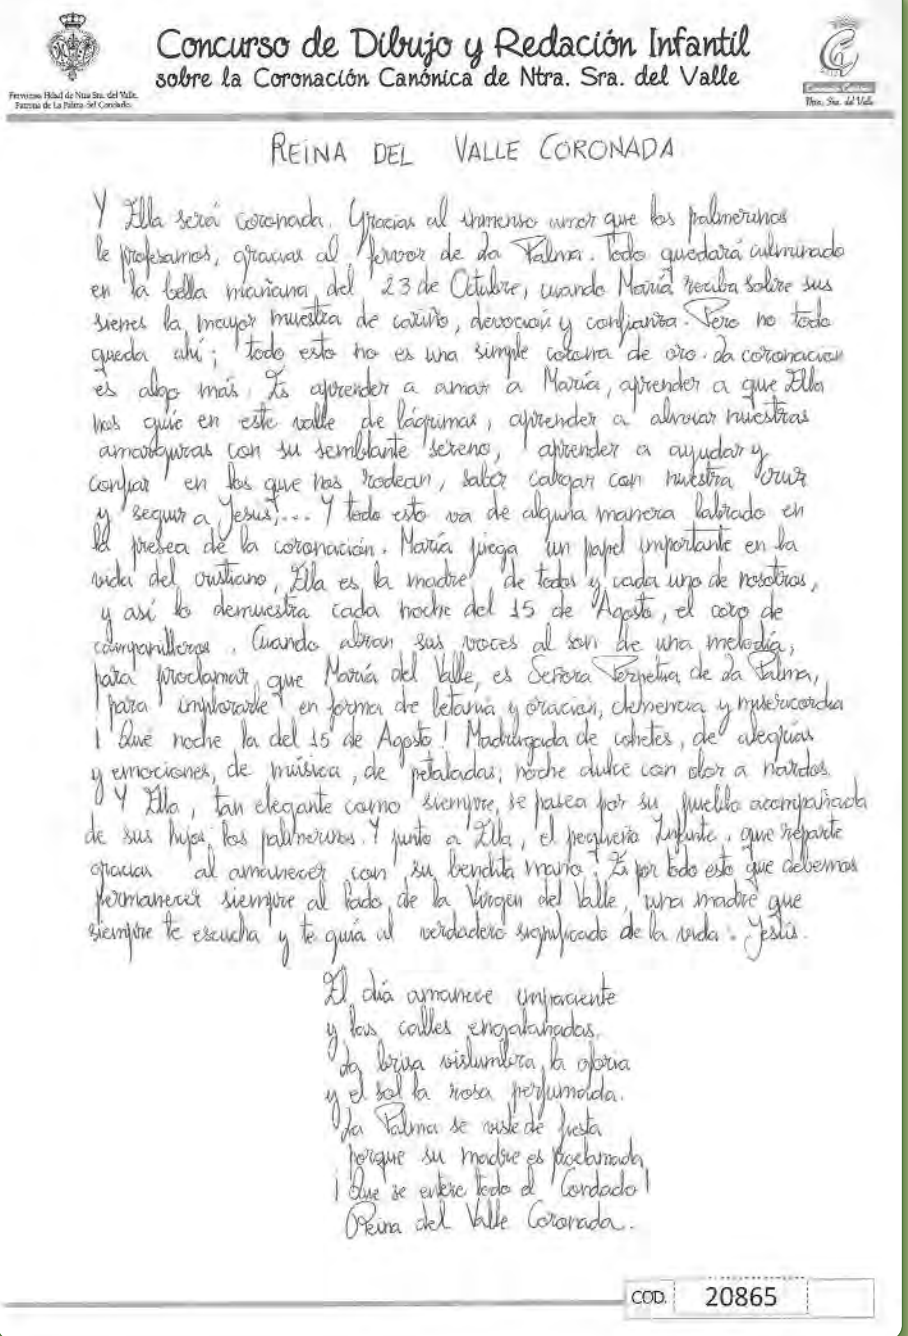 Concurso de Dibujo y Redación Infantil
sobre la Coronación Canónica de Ntra. Sra. del Valle
Fervorosa Hdad de Ntra Sra. del Valle
Patrona de La Palma del Condado
Ntra. Sra. del Valle
REINA DEL VALLE CORONADA
Y Ella será coronada. Gracias al inmenso amor que los palmerinos
le profesamos, gracias al fervor de La Palma. Todo quedará culminado
en la bella mañana del 23 de Octubre, cuando María reciba sobre sus
sienes la mayor muestra de cariño, devoción y confianza. Pero no todo
queda ahí; todo esto no es una simple corona de oro. La coronación
es algo más. Es aprender a amar a María, aprender a que Ella
nos guíe en este valle de lágrimas, aprender a aliviar nuestras
amarguras con su semblante sereno, aprender a ayudar y
confiar en los que nos rodean, saber cargar con nuestra cruz
y seguir a Jesús,... Y todo esto va de alguna manera labrado en
la presea de la coronación. María juega un papel importante en la
vida del cristiano, Ella es la madre de todos y cada uno de nosotros,
y así lo demuestra cada noche del 15 de Agosto, el coro de
campanilleros. Cuando abran sus voces al son de una melodía,
para proclamar que María del Valle, es Señora Perpetua de La Palma,
para implorarle en forma de letanía y oración, clemencia y misericordia
¡Qué noche la del 15 de Agosto! Madrugada de cohetes, de alegrías
y emociones, de música, de petaladas, noche dulce con olor a nardos.
Y Ella, tan elegante como siempre, se pasea por su pueblo acompañada
de sus hijos, los palmerinos. Y junto a Ella, el pequeño Infante, que reparte
gracias al amanecer con su bendita mano. Es por todo esto que debemos
permanecer siempre al lado de la Virgen del Valle, una madre que
siempre te escucha y te guía al verdadero significado de la vida: Jesús.
El día amanece impaciente
y las calles engalanadas.
La brisa vislumbra la gloria
y el sol la rosa perfumada.
La Palma se viste de fiesta
porque su madre es proclamada
¡Que se entere todo el Condado!
Reina del Valle Coronada.
COD. 20865